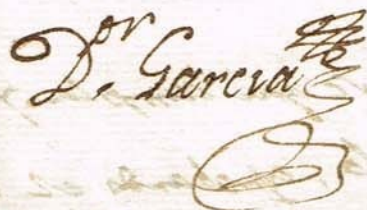 D.ᵒʳ Garcia